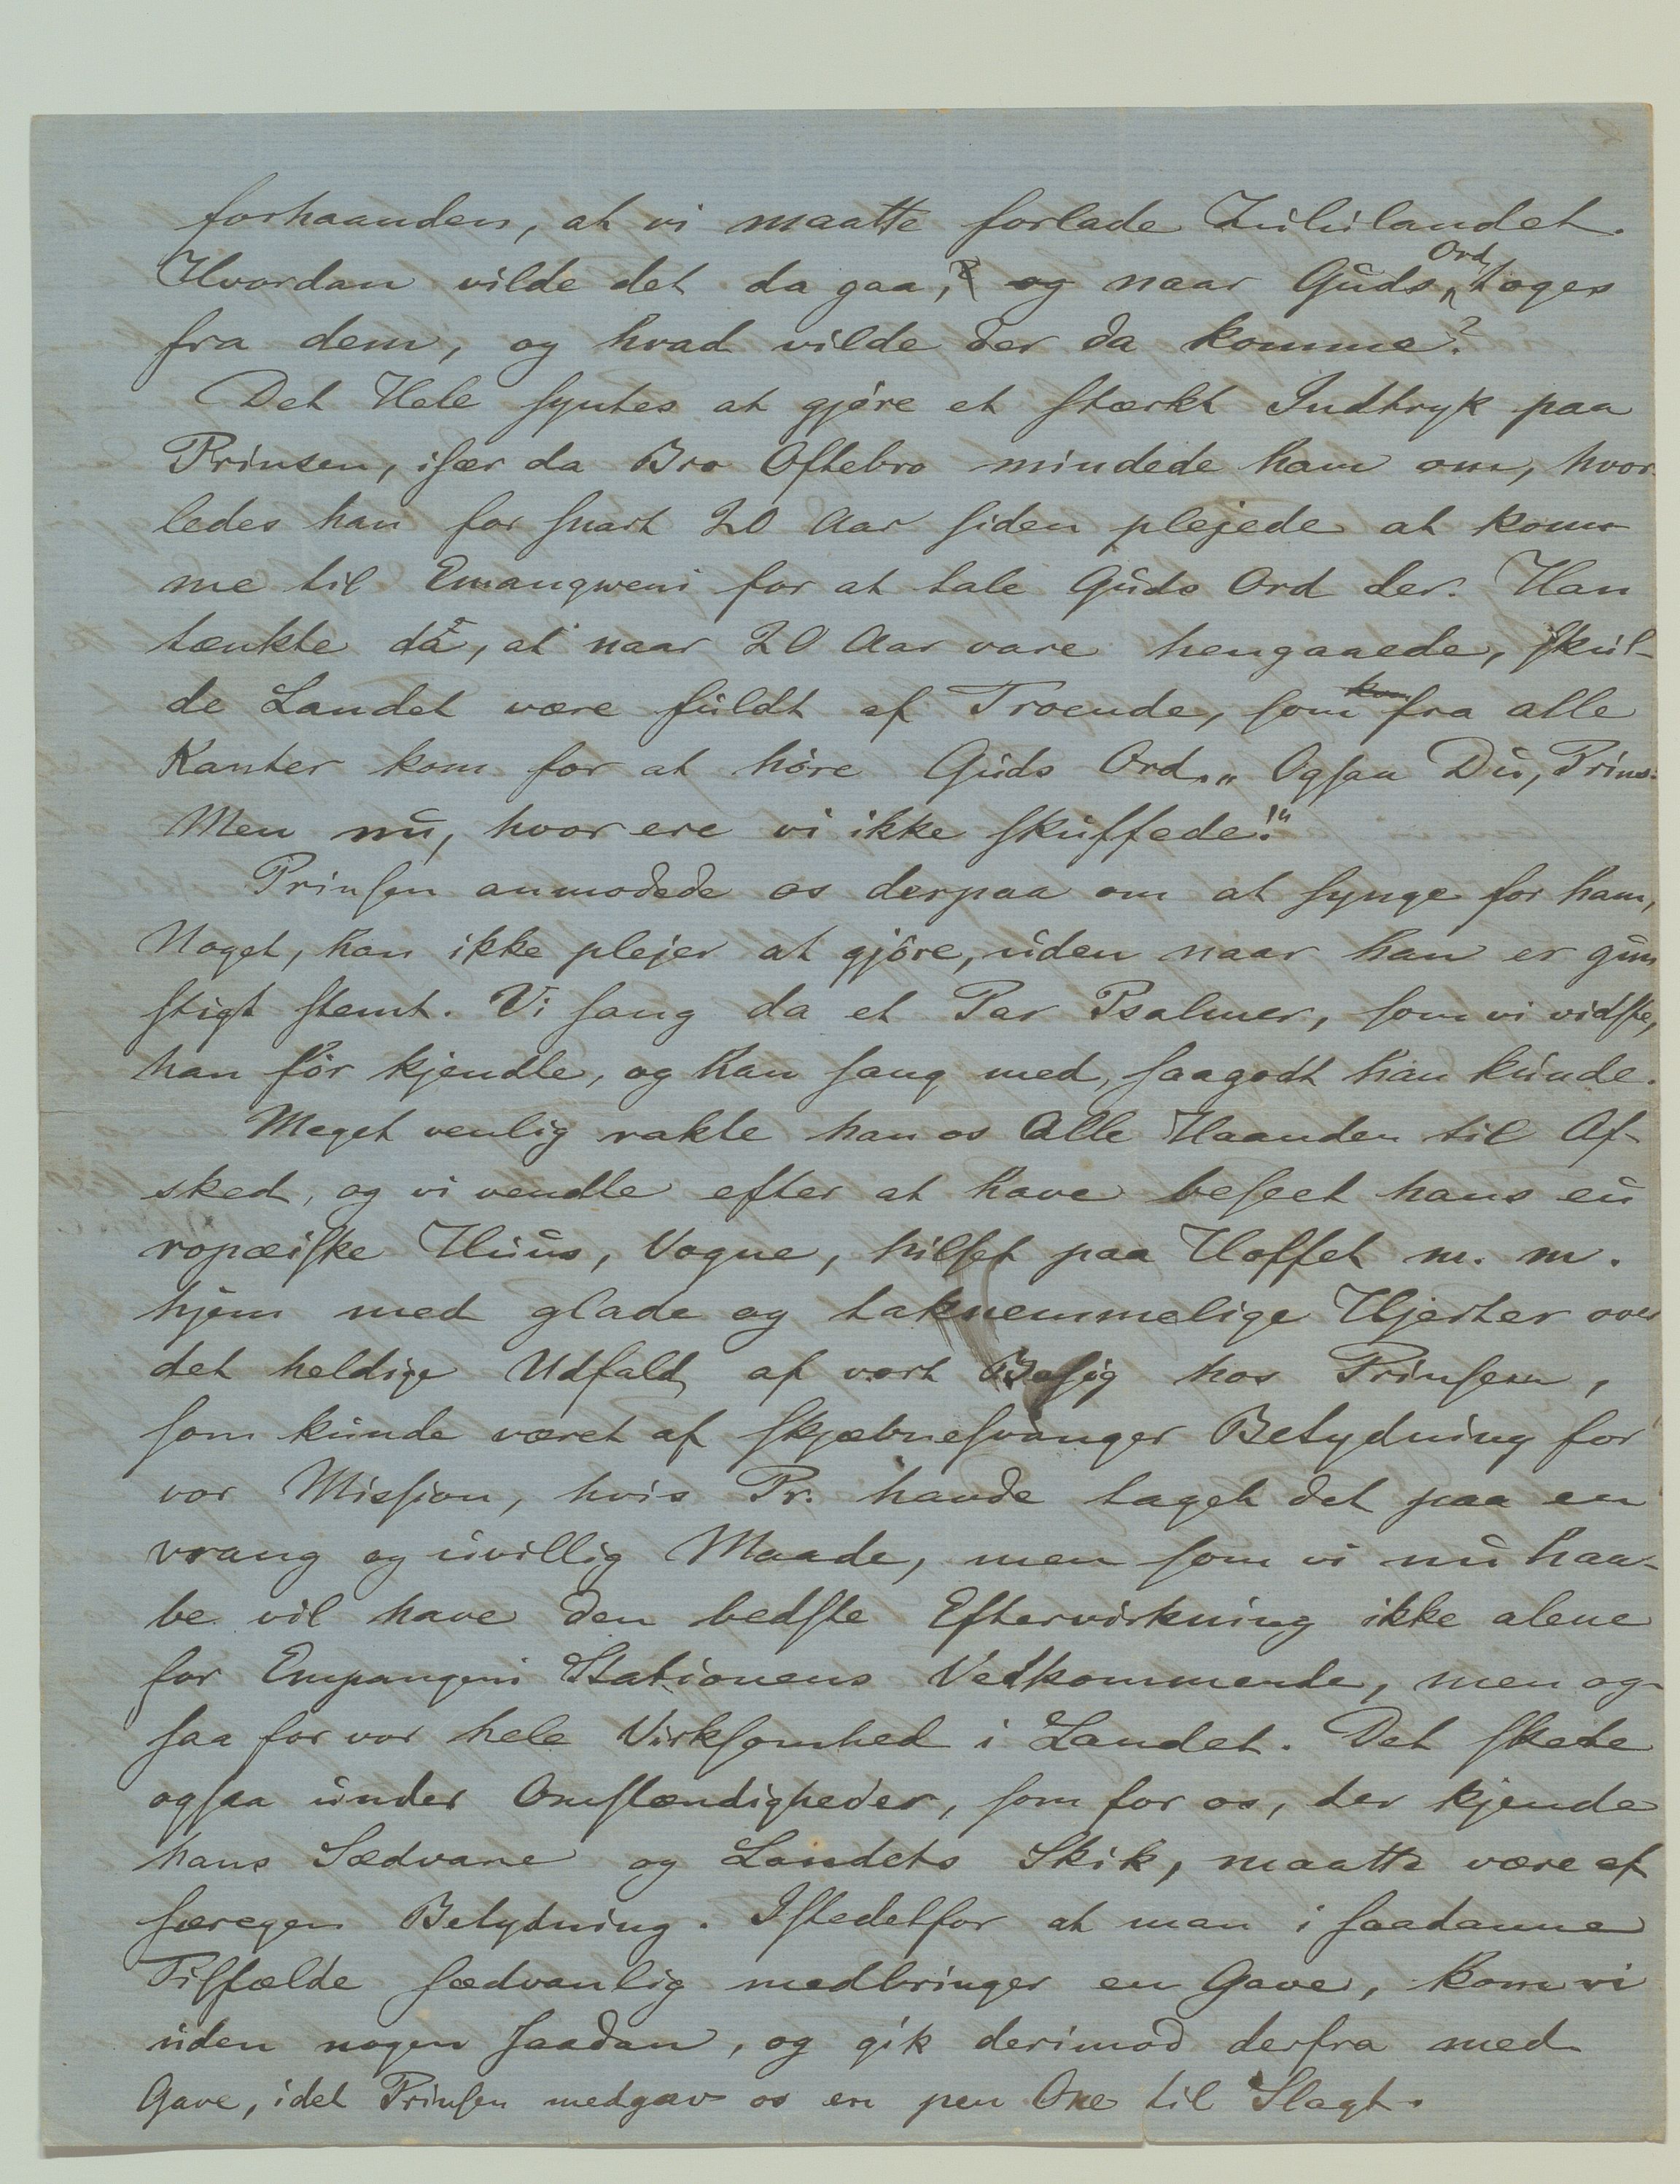 forhaanden, at vi maatte forlade Zululandet.
Hvordan vilde det da gaa, og naar Guds Ord toges
fra dem, og hvad vilde der da komme?
Det Hele syntes at gjøre et stærkt Indtryk paa
Prinsen, især da Bro Oftebro mindede ham om, hvor-
ledes han for snart 20 Aar siden plejede at kom-
me til Emangweni for at tale Guds Ord der. Han
tænkte da, at naar 20 Aar vare hengaaede, skul-
de Landet være fuldt af Troende, som kom fra alle
Kanter kom for at høre Guds Ord. „Ogsaa Du, Prins.
Men nu, hvor ere vi ikke skuffede!“
Prinsen anmodede os derpaa om at synge for ham,
Noget, han ikke plejer at gjøre, uden naar han er gun
stigt stemt. Vi sang da et Par Psalmer, som vi vidste,
han før kjendte, og han sang med, saagodt han kunde.
Meget venlig rakte han os Alle Haanden til Af-
sked, og vi vendte efter at have beseet hans eu
ropæiske Huus, Vogne, hilset paa Hoffet m. m.
hjem med glade og taknemmelige Hjerter over
det heldige Udfald af vort Besøg hos Prinsen,
som kunde været af skjæbnesvanger Betydning for
vor Mission, hvis Pr. havde taget det paa en
vrang og uvillig Maade, men som vi nu haa-
be vil have den bedste Eftervirkning ikke alene
for Empangeni Stationens Vedkommende, men og-
saa for vor hele Virksomhed i Landet. Det skede
ogsaa under Omstændigheder, som for os, der kjende
hans Sædvane og Landets Skik, maatte være af
særegen Betydning. Istedetfor at man i saadanne
Tilfælde sædvanlig medbringer en Gave, kom vi
uden nogen saadan, og gik derimod derfra med
Gave, idet Prinsen medgav os en pen Oxe til Slagt.